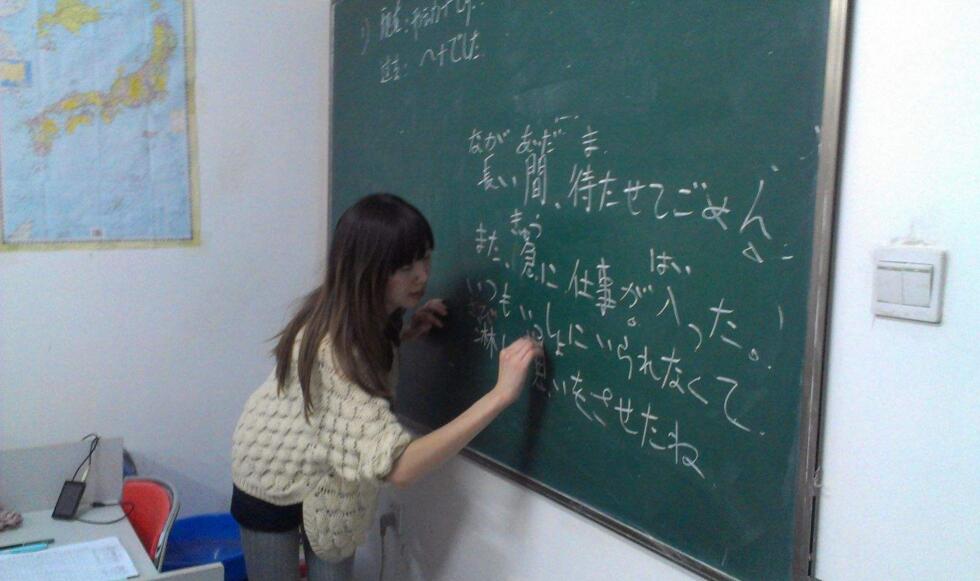 過去: へナでした
なが あいだ ま
長い間、待たせてごめん
きゅう はい
また、急に仕事が入った。
いつもいっしょにいられなくて
淋し思いをさせたね